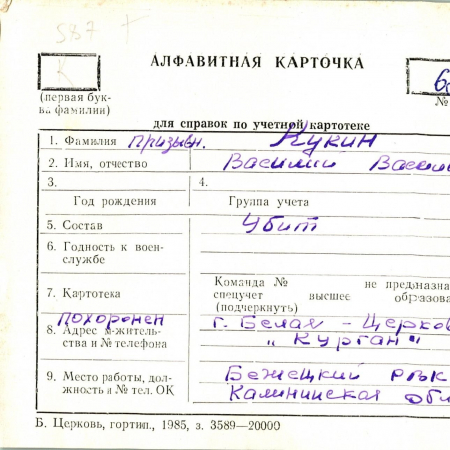 587 Г
К
АЛФАВИТНАЯ КАРТОЧКА
(первая бук-
ва фамилии)
№
для справок по учетной картотеке
1. Фамилия призывн. Кукин
2. Имя, отчество Василий Васил
3. 4.
Год рождения Группа учета
5. Состав Убит
6. Годность к воен-
службе
7. Картотека Команда № не предназна
спецучет высшее образова
(подчеркнуть)
похоронен г. Белая - Церков
8. Адрес м-житель-
ства и № телефона „Курган"
9. Место работы, дол- Бежецкий РВК
жность и № тел. ОК Калининская обл
Б. Церковь, гортип., 1985, з. 3589—20000